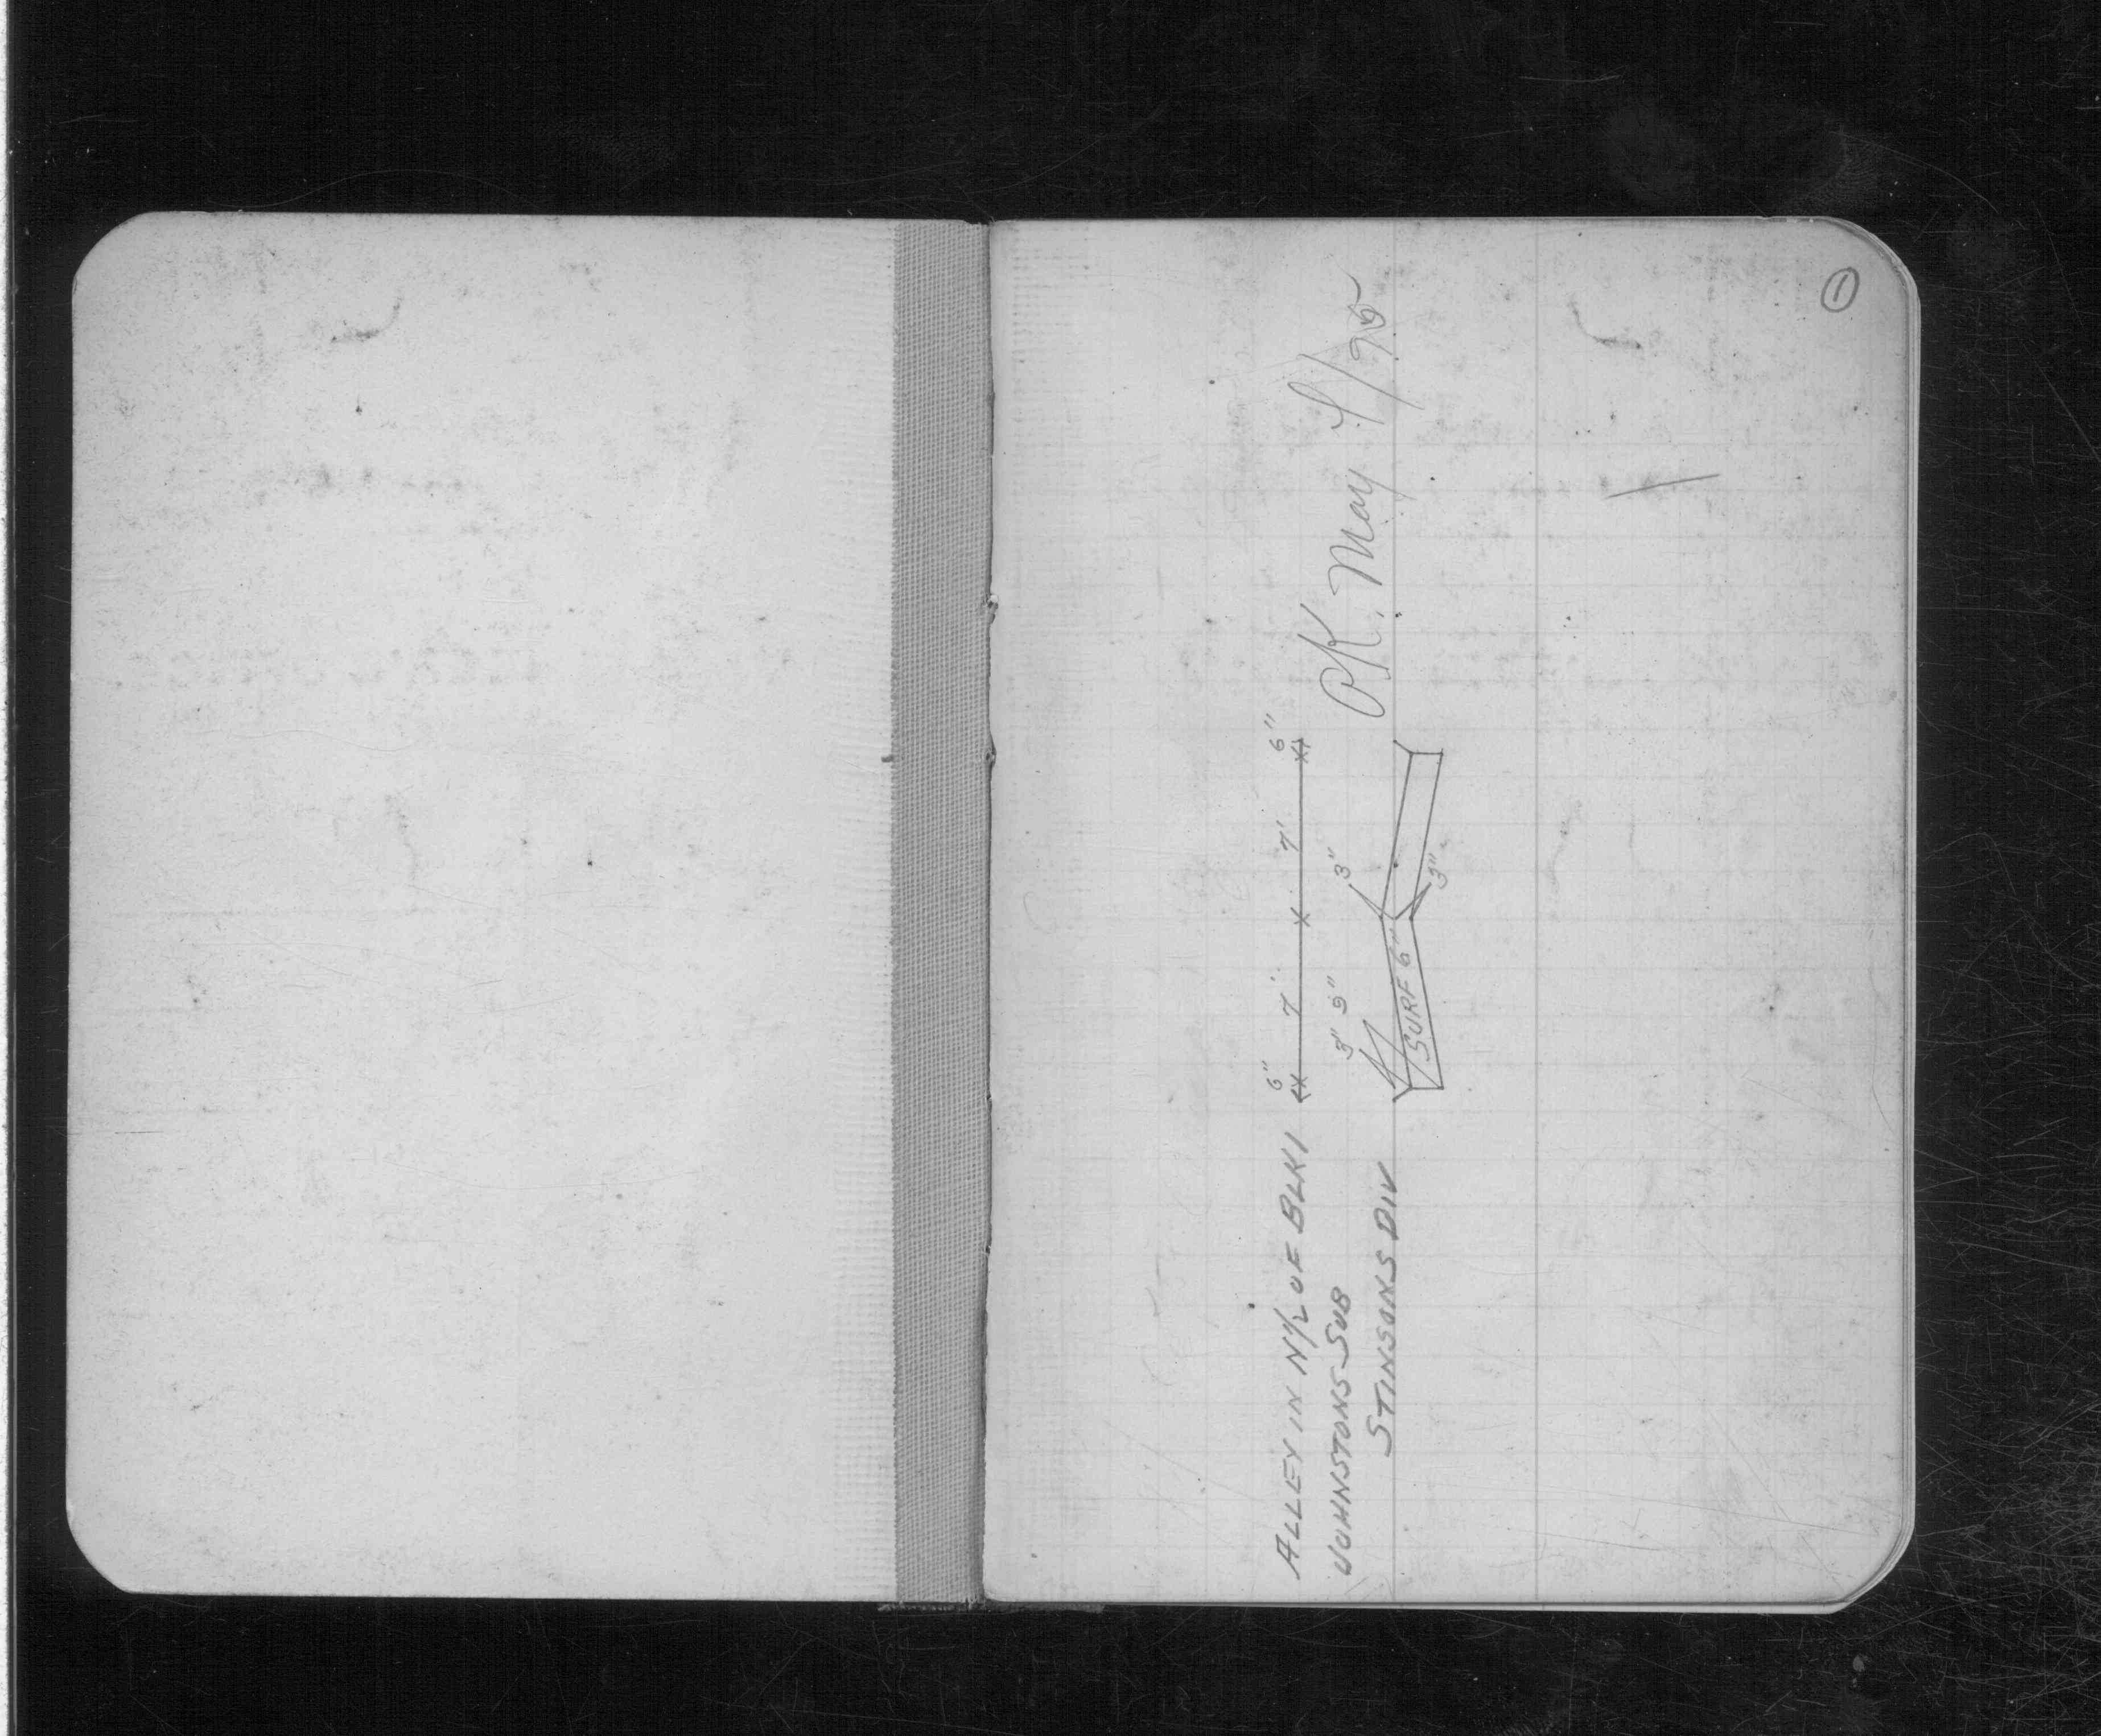 ①
ALLEY IN N½ OF BLK 1
JOHNSTONS SUB
STINSONS DIV
6" 7' 7' 6"
3" 9" 3"
SURF 6" 3"
OK. May